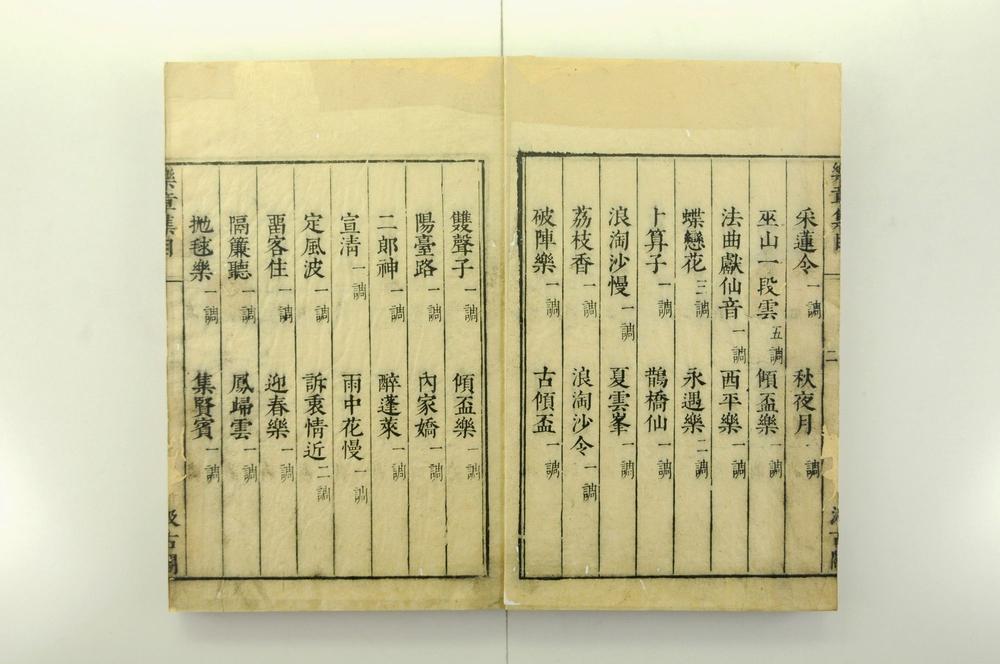 采蓮令 一調 秋夜月 一調
巫山一段雲 五調 傾盃樂 一調
法曲獻仙音 一調 西平樂 一調
蝶戀花 三調 永遇樂 二調
卜算子 一調 鵲橋仙 一調
浪淘沙慢 一調 夏雲峯 一調
荔枝香 一調 浪淘沙令 一調
破陣樂 一調 古傾盃 一調
雙聲子 一調 傾盃樂 一調
陽臺路 一調 內家嬌 一調
二郎神 一調 醉蓬萊 一調
宣清 一調 雨中花慢 一調
定風波 一調 訴衷情近 二調
畱客住 一調 迎春樂 一調
隔簾聽 一調 鳳歸雲 一調
拋毬樂 一調 集賢賓 一調
樂章集目
二
汲古閣